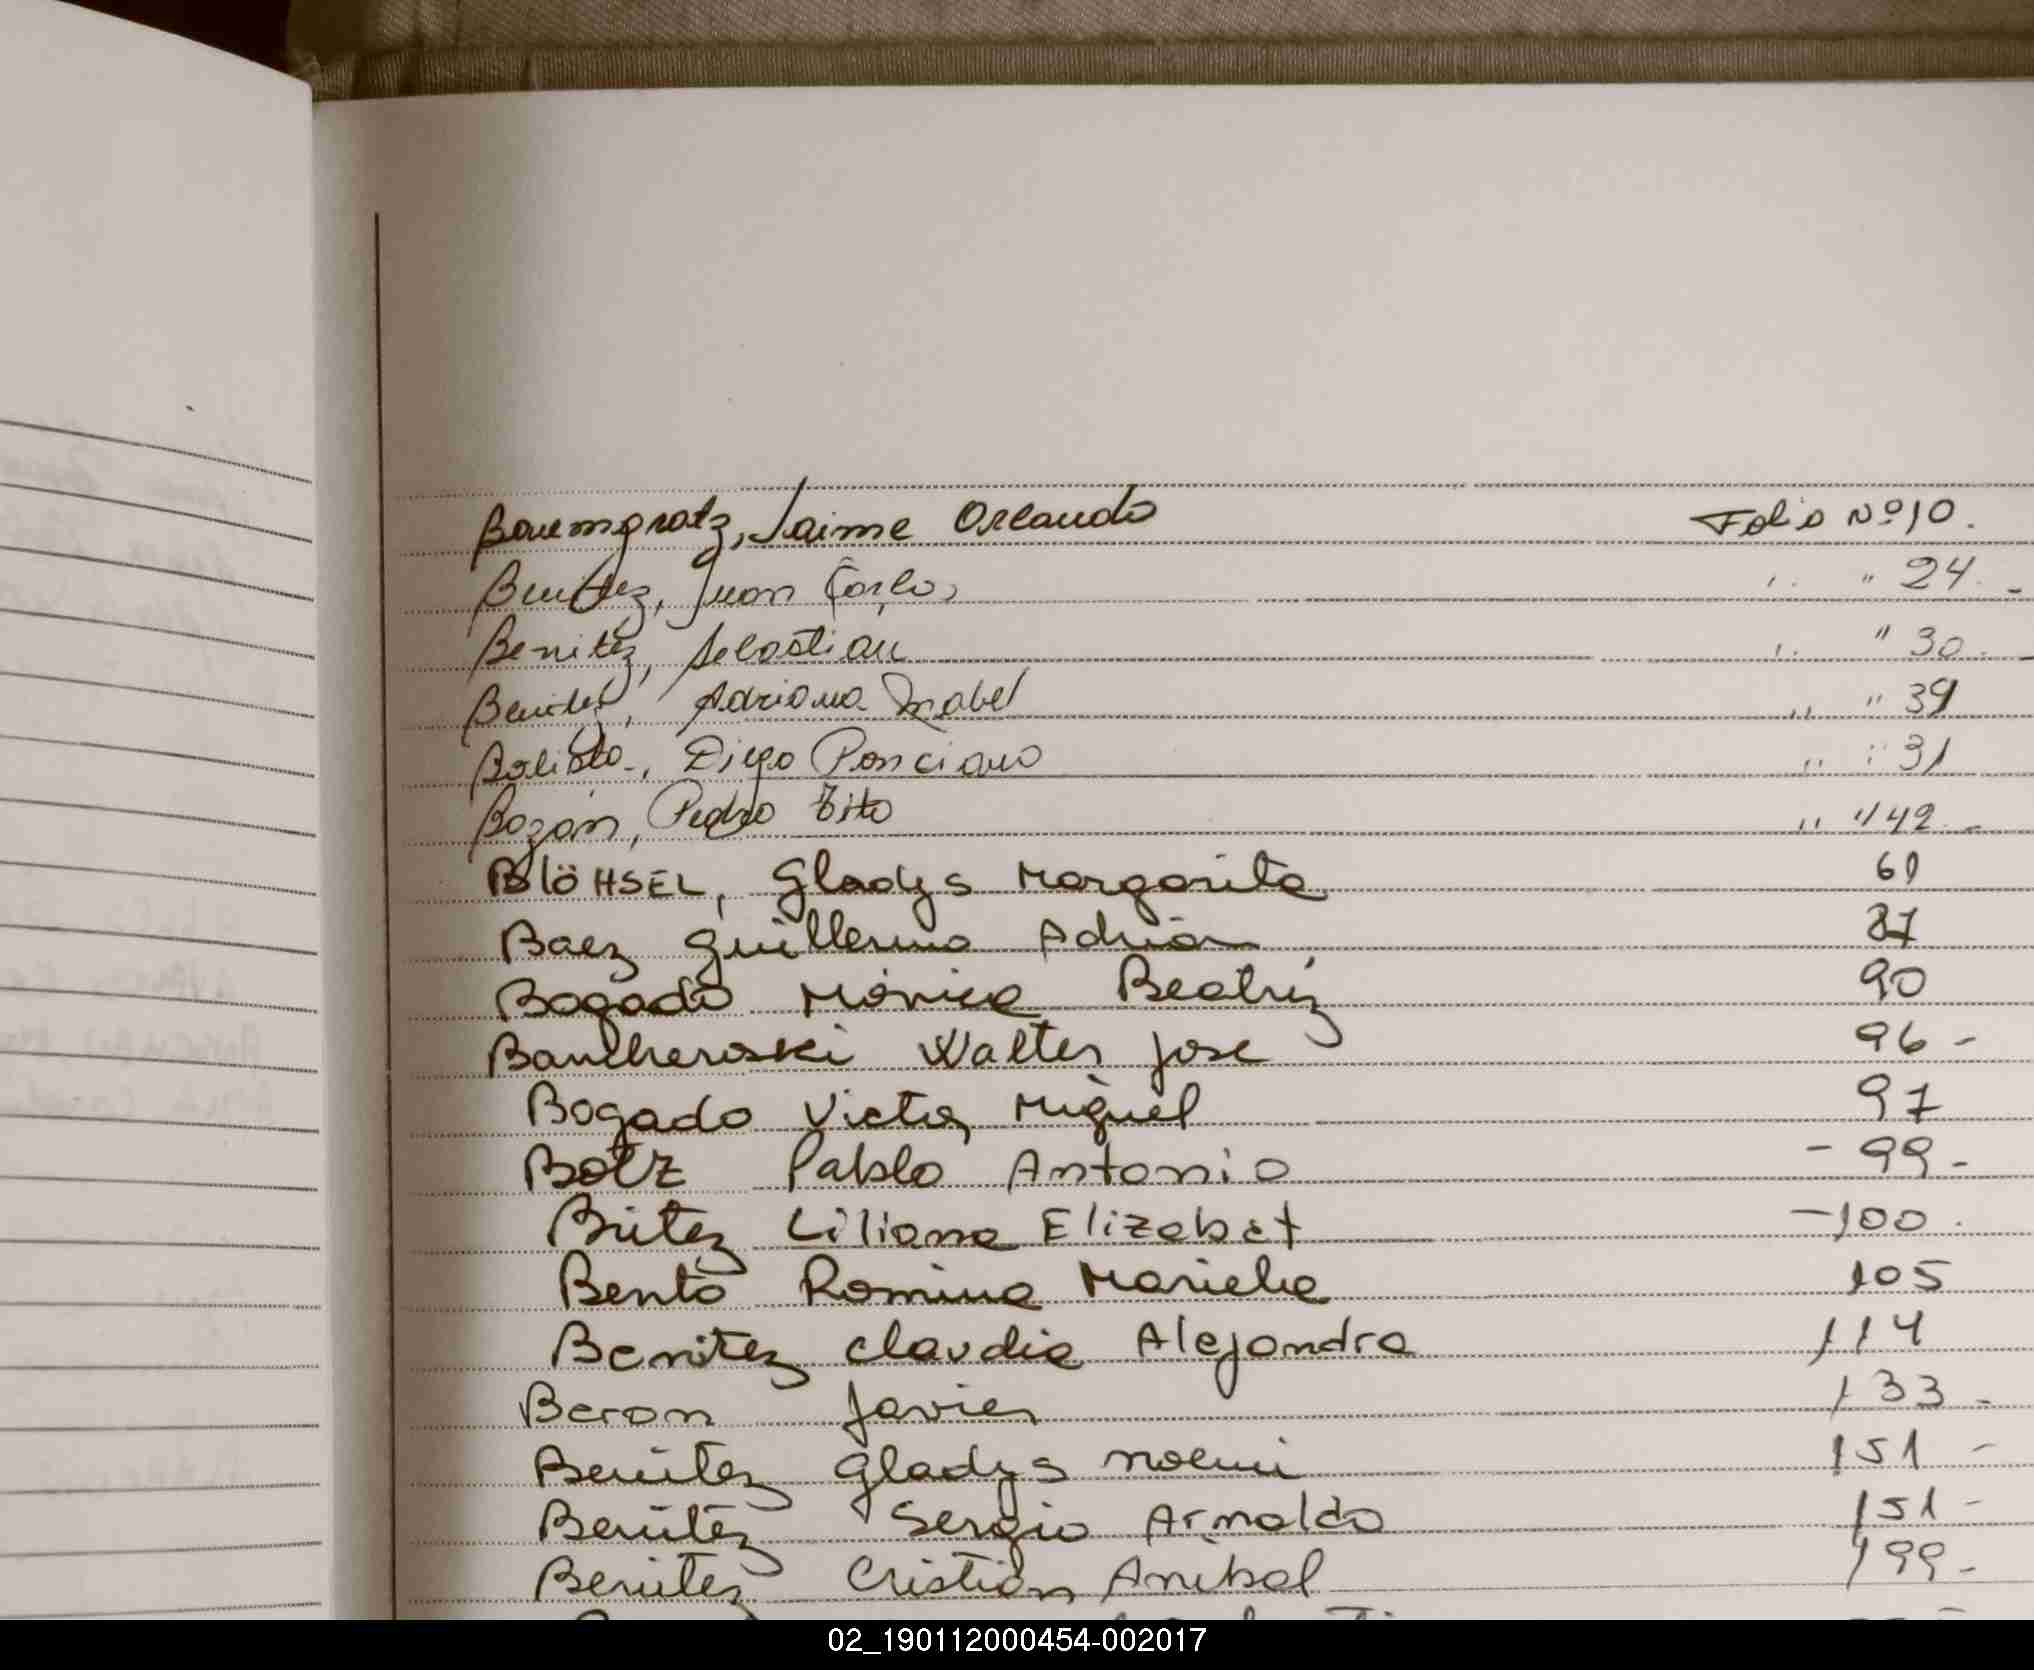 Baumgratz, Jaime Orlando Folio Nº 10.
Benitez, Juan Carlos " " 24.-
Benitez, Sebastian " " 30.-
Benitez, Adriana Mabel " " 39
Diego Ponciano " " 31
Bozán, Pedro Tito " " 42.-
BlöHSEL, Gladys Margarita 61
Baez Guillermo Adrián 87
Bogado Mónica Beatriz 90
Walter Jose 96-
Bogado Victor Miguel 97
Botz Pablo Antonio - 99-
Britez Liliana Elizabet -100.
Bento Romina Mariela 105
Benitez Claudia Alejandra 114
Beron Javier 133-
Benitez Gladys Noemi 151-
Benitez Sergio Arnaldo 151-
Benitez Cristián Anibal 199-
02_190112000454-002017